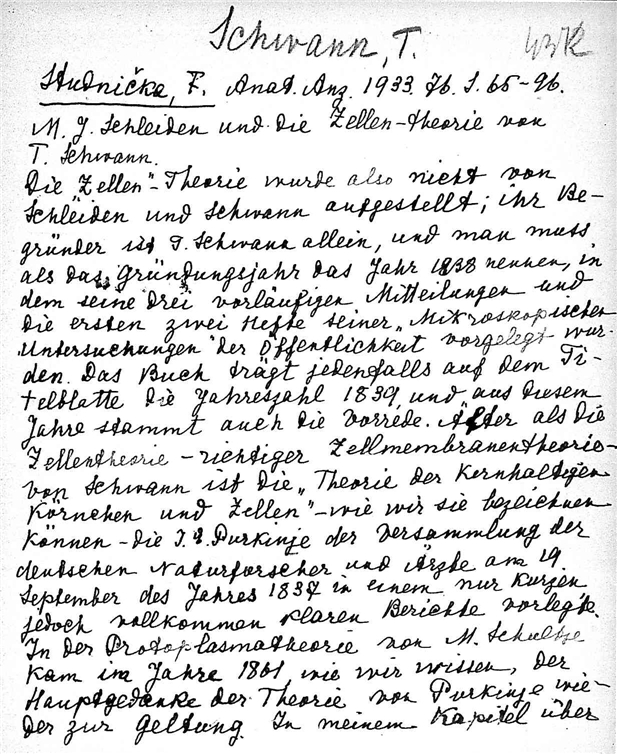 Schwann, T.
Studnička, F. Anat. Anz. 1933. 76. S. 65-96.
M. J. Schleiden und die Zellen-theorie von
T. Schwann.
Die Zellen"-Theorie wurde also nicht von
Schleiden und Schwann aufgestellt; ihr Be-
gründer ist T. Schwann allein, und man muss
als das Gründungsjahr das Jahr 1838 nennen, in
dem seine drei vorläufigen Mitteilungen und
die ersten zwei Hefte seiner „Mikroskopischen
Untersuchungen" der Öffentlichkeit vorgelegt wur-
den. Das Buch trägt jedenfalls auf dem Ti-
telblatte die Jahreszahl 1839, und aus diesem
Jahre stammt auch die Vorrede. Älter als die
Zellentheorie - richtiger Zellmembranentheorie -
von Schwann ist die „Theorie der Kernhaltigen
Körnchen und Zellen" - wie wir sie bezeichnen
können - die J. E. Purkinje der Versammlung der
deutschen Naturforscher und Ärzte am 19.
September des Jahres 1837 in einem nur kurzen
jedoch vollkommen klaren Berichte vorlegte.
In der Protoplasmatheorie von M. Schultze
kam im Jahre 1861, wie wir wissen, der
Hauptgedanke der Theorie von Purkinje wie-
der zur Geltung. In meinem Kapitel über